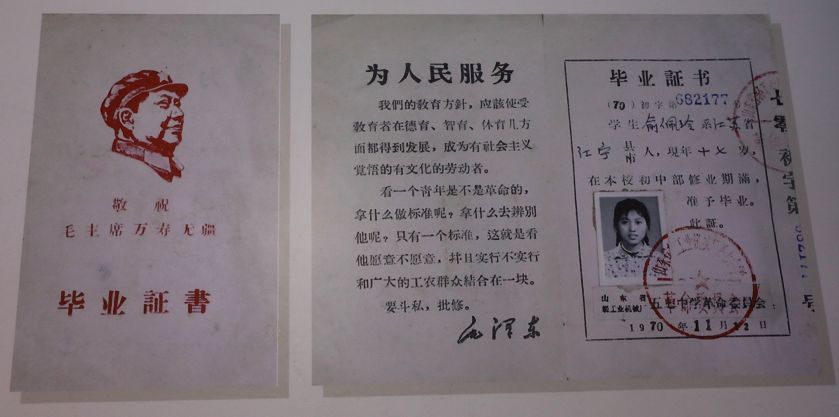 敬祝
毛主席万寿无疆
毕业証書
为人民服务
我們的教育方針，应該使受
教育者在德育、智育、体育几方
面都得到发展，成为有社会主义
覚悟的有文化的劳动者。
看一个青年是不是革命的，
拿什么做标准呢？拿什么去辨别
他呢？只有一个标准，这就是看
他愿意不愿意，幷且实行不实行
和广大的工农群众結合在一块。
要斗私，批修。
毛泽东
毕业証书
（70）初字第682177
学生俞佩玲系江苏省
江宁县市人，現年十七岁，
在本校初中部修业期滿，
准予毕业。
此証。
山东省
輕工业机械厂五七中学革命委員会
1970年11月12日
七零初字第
号
革命委員会